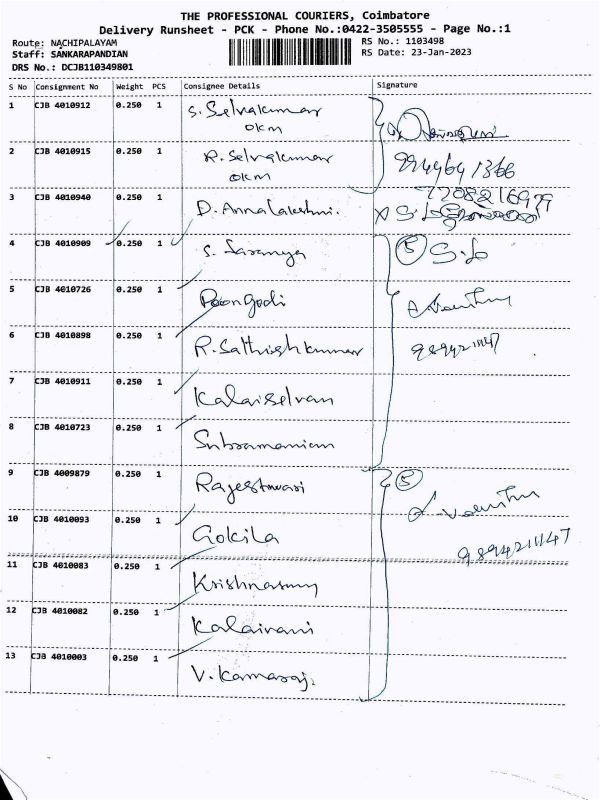 THE PROFESSIONAL COURIERS, Coimbatore
Delivery Runsheet - PCK - Phone No.:0422-3505555 - Page No.:1
Route: NACHIPALAYAM RS No.: 1103498
Staff: SANKARAPANDIAN RS Date: 23-Jan-2023
DRS No.: DCJB110349801
S No Consignment No Weight PCS Consignee Details Signature
1 CJB 4010912 0.250 1 S. Selvakumar
OKM
2 CJB 4010915 0.250 1 R. Selvakumar
OKM
9944641366
3 CJB 4010940 0.250 1 D. Annalakshmi.
7708216979
4 CJB 4010909 0.250 1 S. Saranya 5
5 CJB 4010726 0.250 1 Poongodi
6 CJB 4010898 0.250 1 R. Sathishkumar 9894211147
7 CJB 4010911 0.250 1 Kalaiselvan
8 CJB 4010723 0.250 1 Subramaniam
9 CJB 4009879 0.250 1 Rajeshwari 5
10 CJB 4010093 0.250 1 Gokila 9894211147
11 CJB 4010083 0.250 1 Krishnasamy
12 CJB 4010082 0.250 1 Kalaivani
13 CJB 4010003 0.250 1 V. Kamaraj.